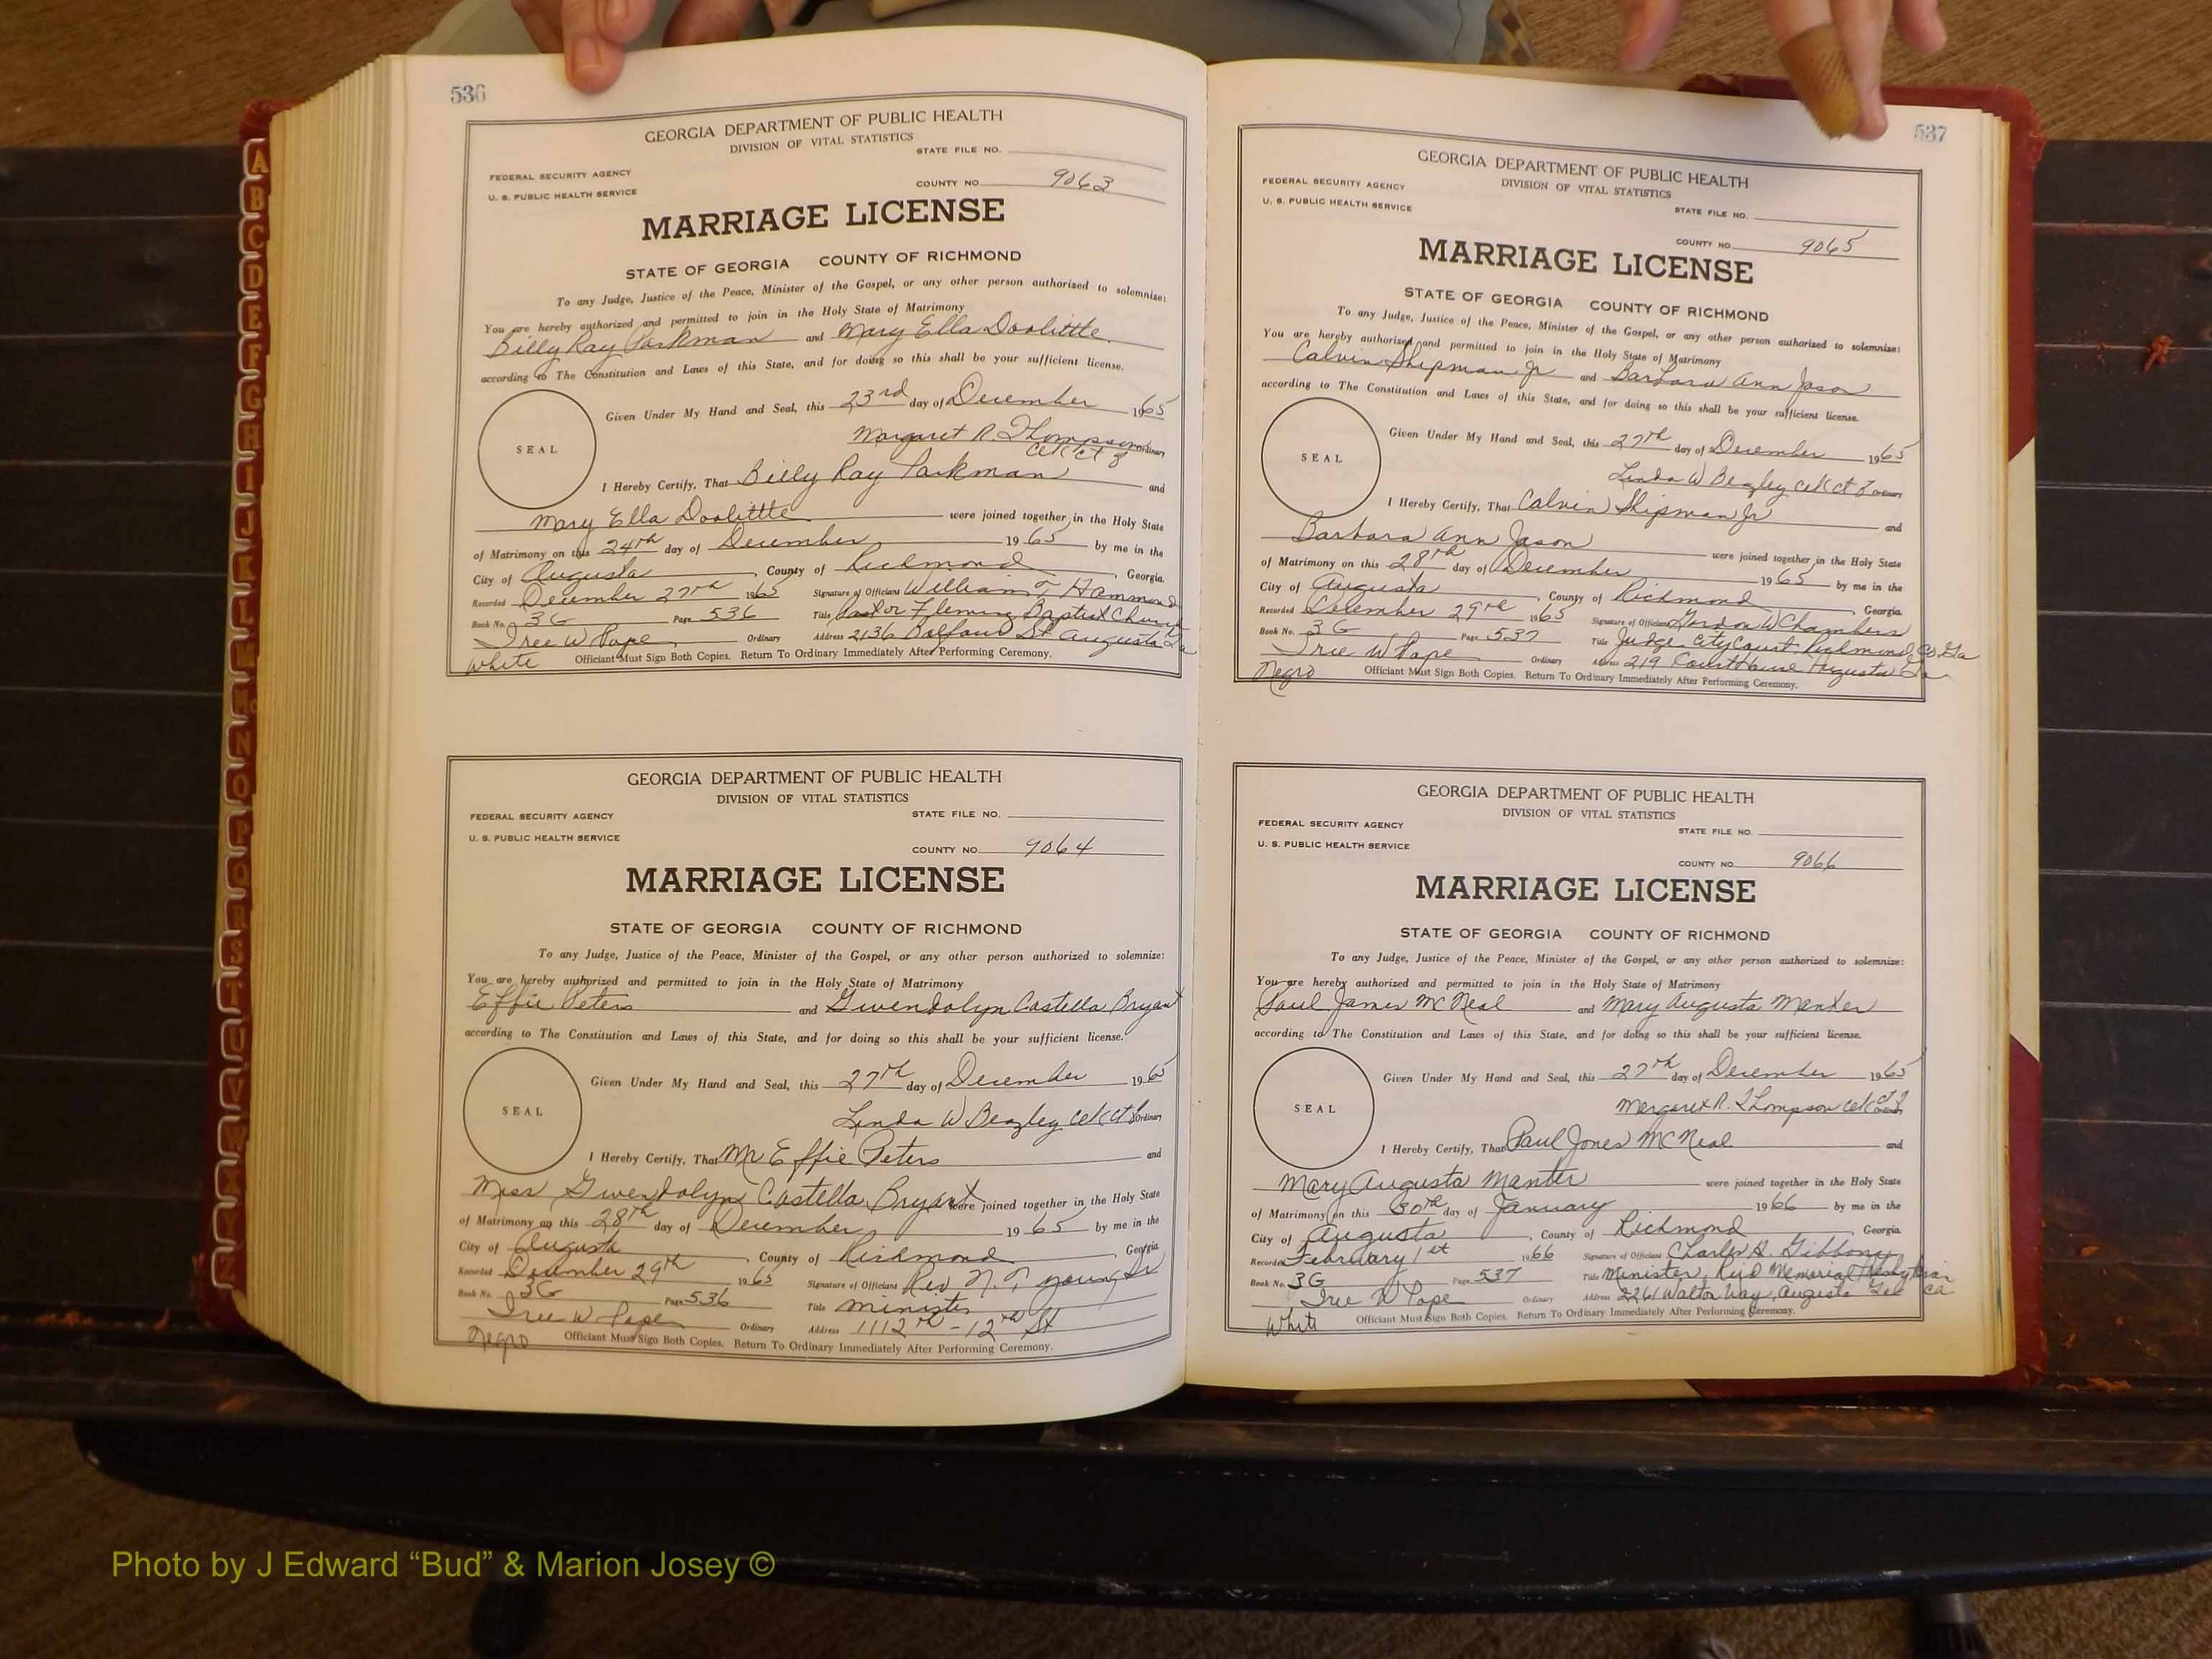 536
GEORGIA DEPARTMENT OF PUBLIC HEALTH
DIVISION OF VITAL STATISTICS
STATE FILE NO.
FEDERAL SECURITY AGENCY
U. S. PUBLIC HEALTH SERVICE
COUNTY NO. 9063
MARRIAGE LICENSE
STATE OF GEORGIA COUNTY OF RICHMOND
To any Judge, Justice of the Peace, Minister of the Gospel, or any other person authorized to solemnize:
You are hereby authorized and permitted to join in the Holy State of Matrimony
Billy Ray Parkman and Mary Ella Doolittle
according to The Constitution and Laws of this State, and for doing so this shall be your sufficient license.
Given Under My Hand and Seal, this 23rd day of December 1965
SEAL
Margaret R. Thompson Ordinary
Clk Ct
I Hereby Certify, That Billy Ray Parkman and
Mary Ella Doolittle were joined together in the Holy State
of Matrimony on this 24th day of December 1965 by me in the
City of Augusta, County of Richmond, Georgia
Recorded December 27th 1965 Signature of Officiant William T Hammond
Book No. 3G Page 536 Title Pastor Fleming Baptist Church
Iree W Pope Ordinary Address 2136 Balfour St Augusta Ga
White Officiant Must Sign Both Copies. Return To Ordinary Immediately After Performing Ceremony.
GEORGIA DEPARTMENT OF PUBLIC HEALTH
DIVISION OF VITAL STATISTICS
FEDERAL SECURITY AGENCY STATE FILE NO.
U. S. PUBLIC HEALTH SERVICE
COUNTY NO. 9064
MARRIAGE LICENSE
STATE OF GEORGIA COUNTY OF RICHMOND
To any Judge, Justice of the Peace, Minister of the Gospel, or any other person authorized to solemnize:
You are hereby authorized and permitted to join in the Holy State of Matrimony
Effie Peters and Gwendolyn Costella Bryant
according to The Constitution and Laws of this State, and for doing so this shall be your sufficient license.
Given Under My Hand and Seal, this 27th day of December 1965
SEAL
Linda W Beazley Clk Ct Ordinary
I Hereby Certify, That Mr Effie Peters and
Miss Gwendolyn Costella Bryant were joined together in the Holy State
of Matrimony on this 28th day of December 1965 by me in the
City of Augusta, County of Richmond, Georgia
Recorded December 29th 1965 Signature of Officiant Rev N. T. Young Sr
Book No. 3G Page 536 Title Minister
Iree W Pope Ordinary Address 1112th - 12th St
Negro Officiant Must Sign Both Copies. Return To Ordinary Immediately After Performing Ceremony.
537
GEORGIA DEPARTMENT OF PUBLIC HEALTH
DIVISION OF VITAL STATISTICS
FEDERAL SECURITY AGENCY
U. S. PUBLIC HEALTH SERVICE
STATE FILE NO.
COUNTY NO. 9065
MARRIAGE LICENSE
STATE OF GEORGIA COUNTY OF RICHMOND
To any Judge, Justice of the Peace, Minister of the Gospel, or any other person authorized to solemnize:
You are hereby authorized and permitted to join in the Holy State of Matrimony
Calvin Shipman Jr and Barbara Ann Jason
according to The Constitution and Laws of this State, and for doing so this shall be your sufficient license.
Given Under My Hand and Seal, this 27th day of December 1965
SEAL
Linda W Beazley Clk Ct Ordinary
I Hereby Certify, That Calvin Shipman Jr and
Barbara Ann Jason were joined together in the Holy State
of Matrimony on this 28th day of December 1965 by me in the
City of Augusta, County of Richmond, Georgia
Recorded December 29th 1965 Signature of Officiant Gordon W Chambers
Book No. 3G Page 537 Title Judge City Court Richmond Co Ga
Iree W Pope Ordinary Address 219 CourtHouse Augusta Ga
Negro Officiant Must Sign Both Copies. Return To Ordinary Immediately After Performing Ceremony.
GEORGIA DEPARTMENT OF PUBLIC HEALTH
DIVISION OF VITAL STATISTICS
FEDERAL SECURITY AGENCY
STATE FILE NO.
U. S. PUBLIC HEALTH SERVICE
COUNTY NO. 9066
MARRIAGE LICENSE
STATE OF GEORGIA COUNTY OF RICHMOND
To any Judge, Justice of the Peace, Minister of the Gospel, or any other person authorized to solemnize:
You are hereby authorized and permitted to join in the Holy State of Matrimony
Paul James McNeal and Mary Augusta Manter
according to The Constitution and Laws of this State, and for doing so this shall be your sufficient license.
Given Under My Hand and Seal, this 27th day of December 1965
SEAL
Margaret R. Thompson Clk Ct
I Hereby Certify, That Paul Jones McNeal and
Mary Augusta Manter were joined together in the Holy State
of Matrimony on this 30th day of January 1966 by me in the
City of Augusta, County of Richmond, Georgia
Recorded February 1st 1966 Signature of Officiant Charles A. Gibbony
Book No. 3G Page 537 Title Minister, Reid Memorial Presbyterian
Iree W Pope Ordinary Address 2261 Walton Way, Augusta
White Officiant Must Sign Both Copies. Return To Ordinary Immediately After Performing Ceremony.
A
B
C
D
E
F
G
H
I
J
K
L
M
Mc
N
O
P
Q
R
S
T
U
V
W
X
Y
Z
Photo by J Edward “Bud” & Marion Josey ©